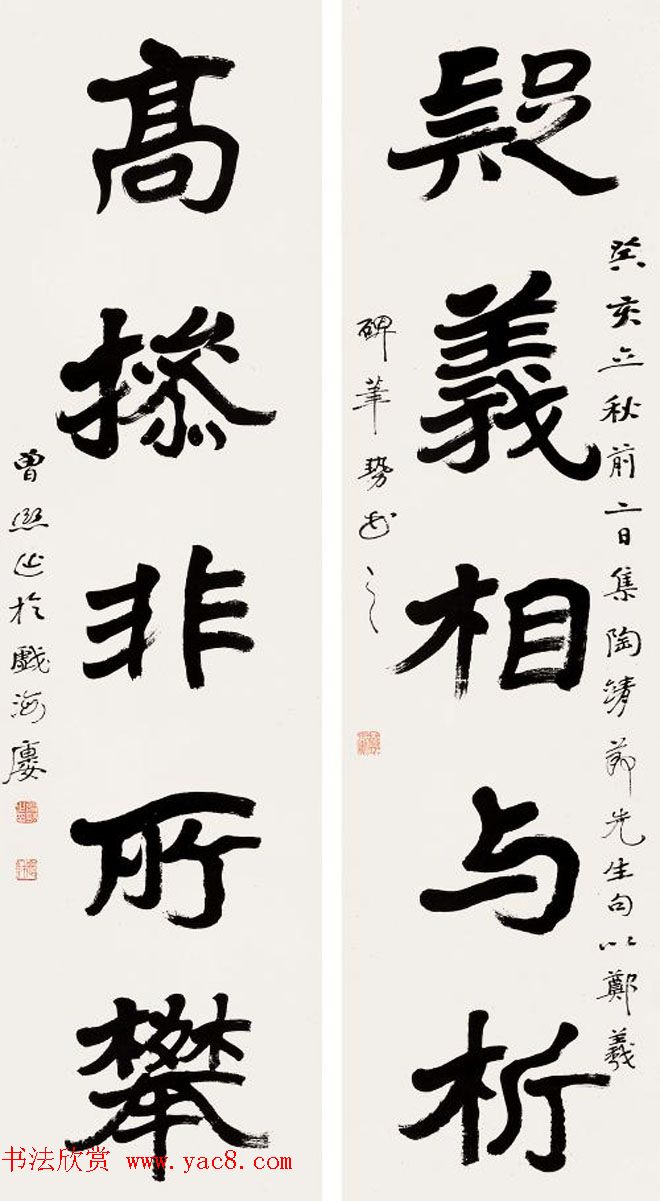 疑義相与析
癸亥立秋前二日集陶靖節先生句以鄭羲
碑筆勢之
高操非所攀
曾熙於戲海廔
书法欣赏 www.yac8.com